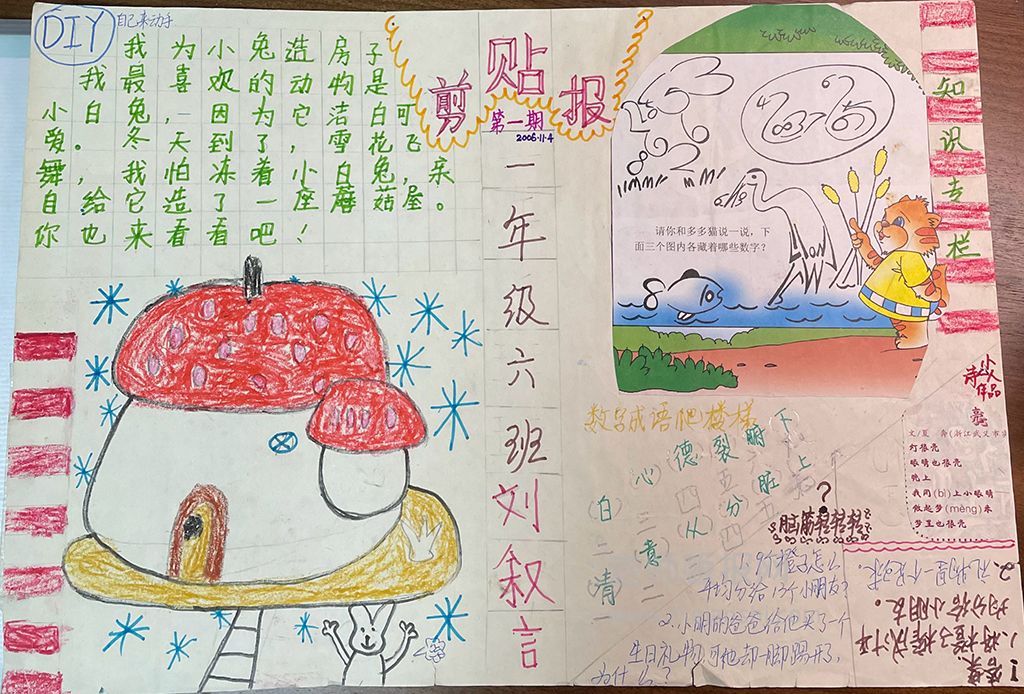 DIY 自己来动手
我为小兔造房子
我最喜欢的动物是
小白兔,因为它洁白可
爱。冬天到了,雪花飞
舞,我怕冻着小白兔,亲
自给它造了一座蘑菇屋。
你也来看看吧!
剪贴报
第一期
2006.11.4
一年级六班刘叙言
请你和多多猫说一说,下
面三个图内各藏着哪些数字?
知识专栏
数字成语爬楼梯
下
德裂腑上
心 五(脏)
(白)四分
三(从)四
二意三
(清)二
一
脑筋转转转转?
1.9个橙子怎么
平均分给13个小朋友?
2.小明的爸爸给他买了一个
生日礼物,可他却一脚踢开,
为什么?
少儿诗人作品
亮
文/夏 奔(浙江武义市
灯很亮
眼睛也很亮
晚上
我闭(bì)上小眼睛
做起梦(mèng)来
梦里也很亮
答案
1.将橙子榨成汁平
均分给小朋友。
2.礼物是一个足球。